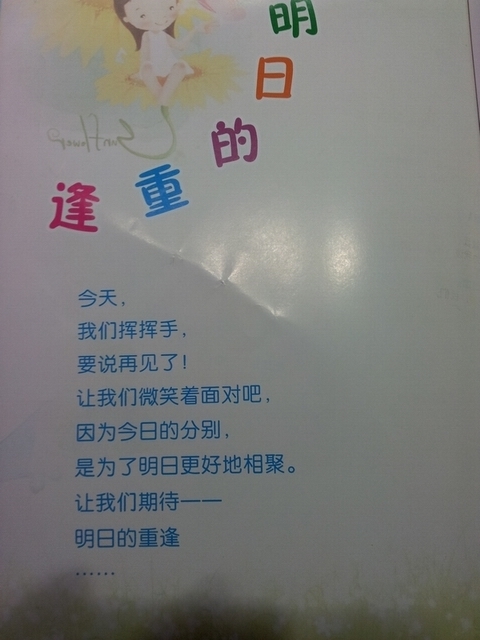 明日的重逢
Sunflower
今天，
我们挥挥手，
要说再见了！
让我们微笑着面对吧，
因为今日的分别，
是为了明日更好地相聚。
让我们期待——
明日的重逢
……